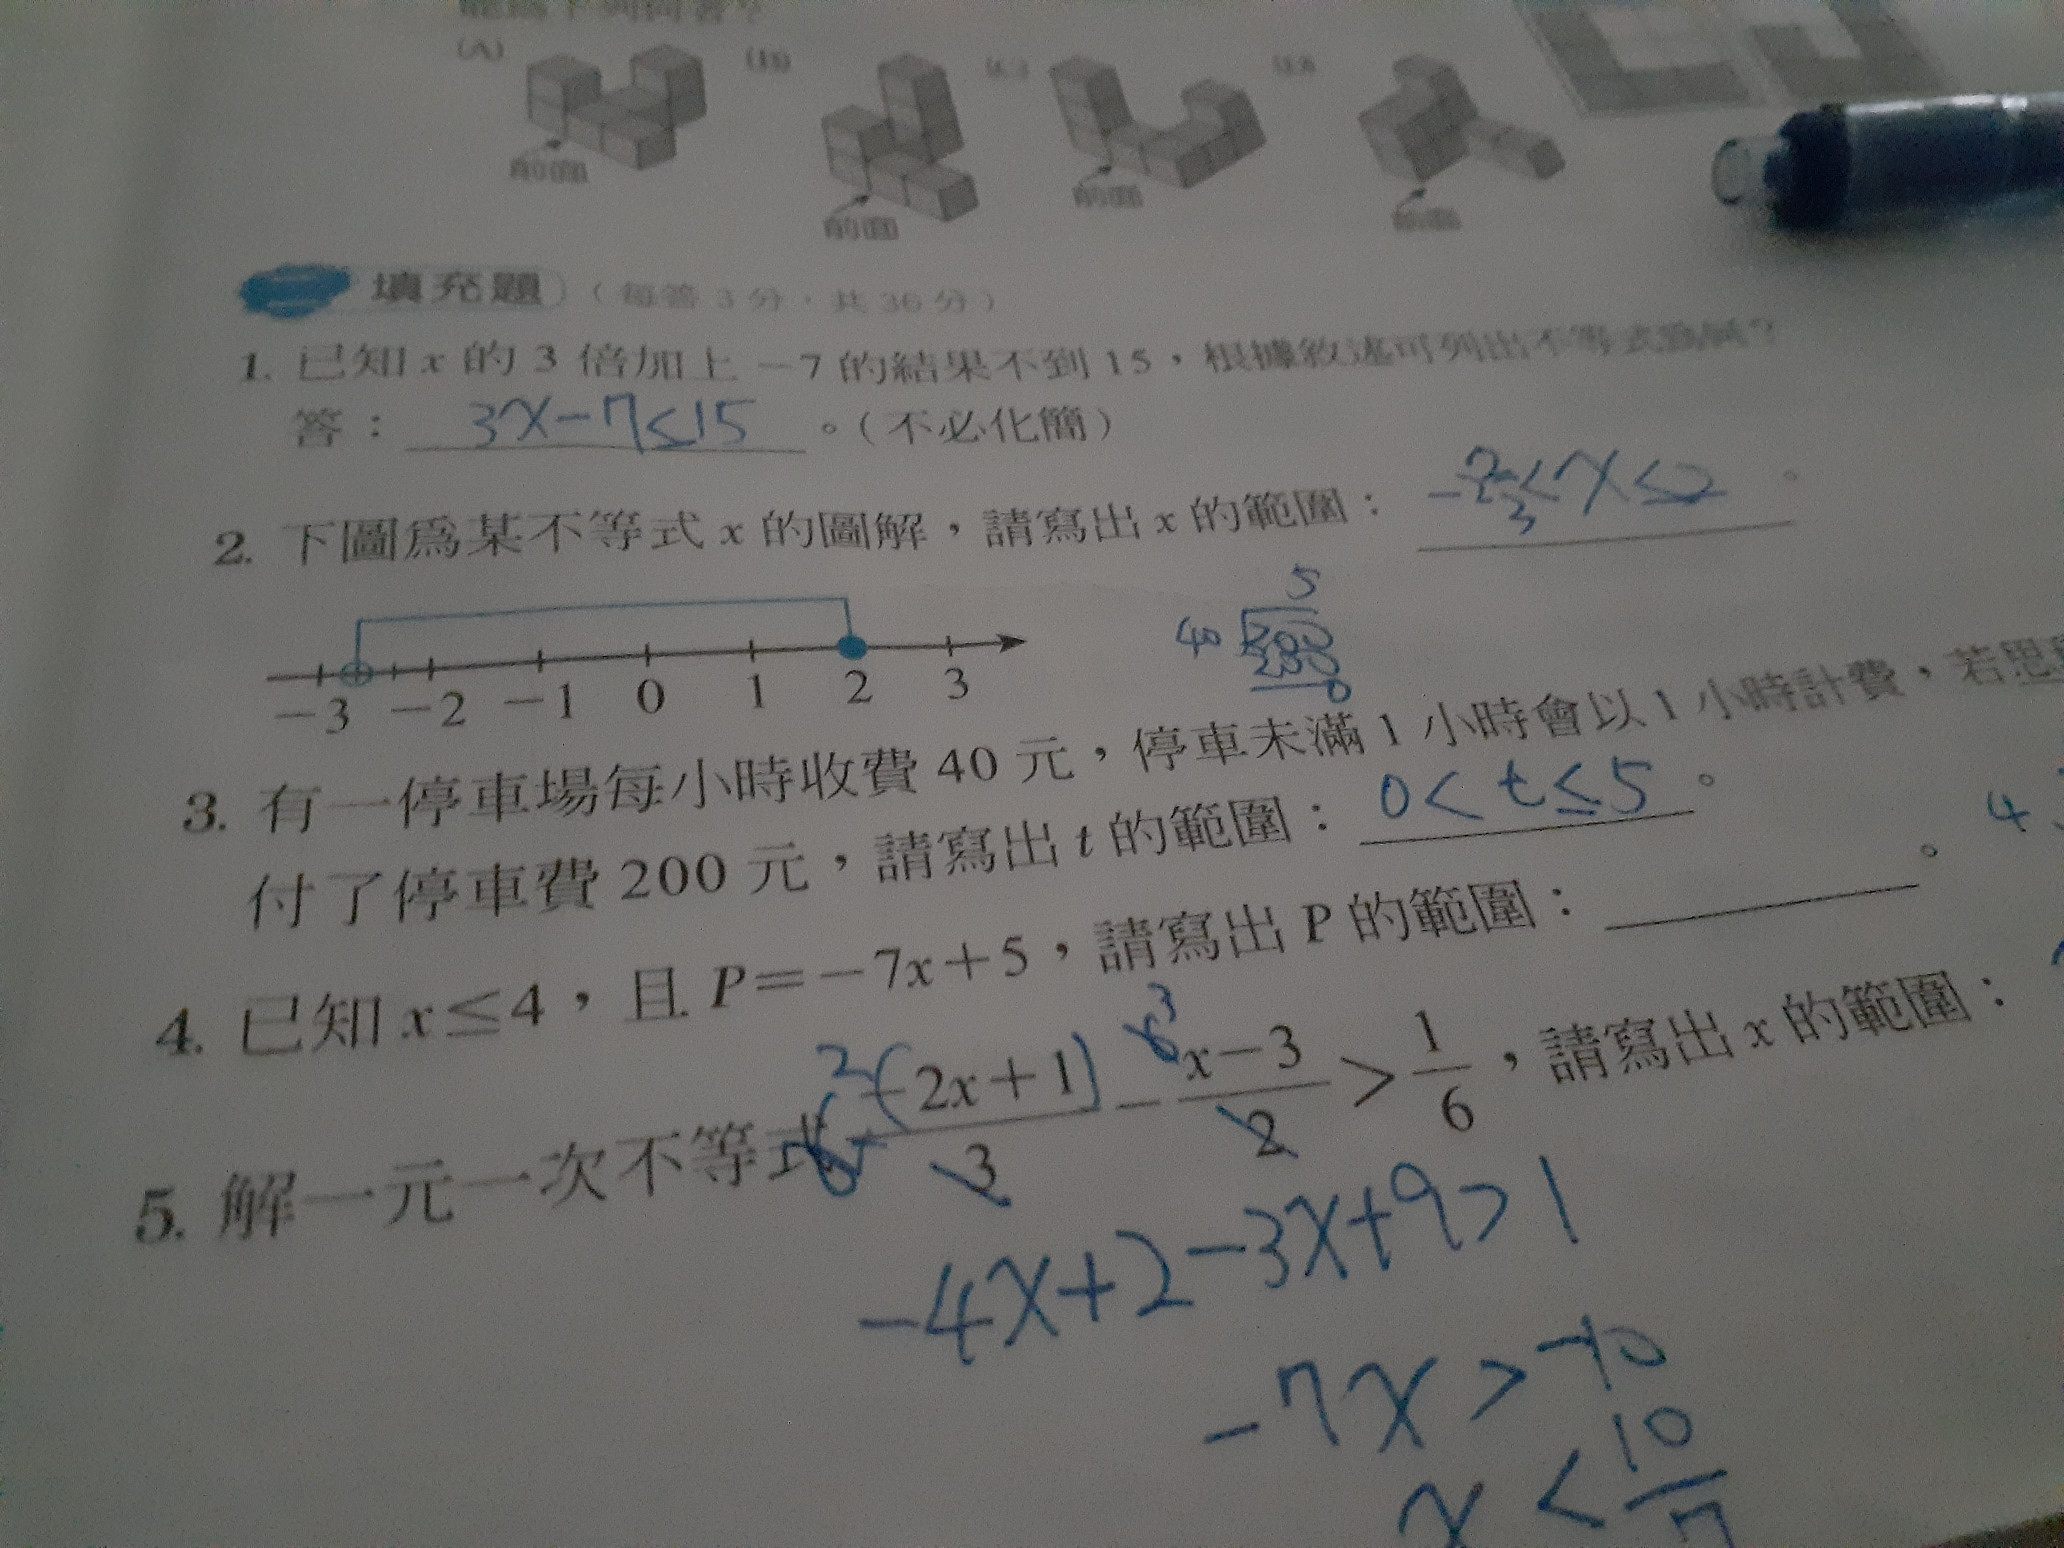 (A) (B) (C) (D)
前面 前面 前面 前面
填充題（每答 3 分，共 36 分）
1. 已知 x 的 3 倍加上 －7 的結果不到 15，根據敘述可列出不等式為何？
答： 3x-7≤15 。（不必化簡）
2. 下圖為某不等式 x 的圖解，請寫出 x 的範圍： <x≤2 。
－3 －2 －1 0 1 2 3
5
40 200
200
0
3. 有一停車場每小時收費 40 元，停車未滿 1 小時會以 1 小時計費，若思
付了停車費 200 元，請寫出 t 的範圍： 0<t≤5 。
4
4. 已知 x≤4，且 P＝－7x＋5，請寫出 P 的範圍： 。
5. 解一元一次不等式 6 2 (－2x＋1)/3 － 6 3 x－3/2 ＞ 1/6，請寫出 x 的範圍：
-4x+2-3x+9>1
-7x>-10
x<10/7